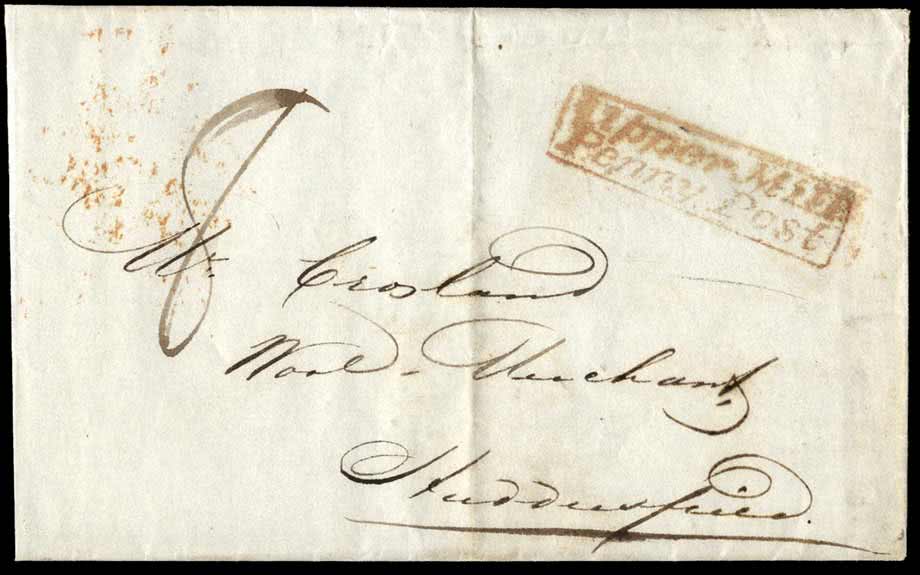 Upper-Mill
Penny Post
8
Mr. Crosland
Wool-Merchant,
Huddersfield.